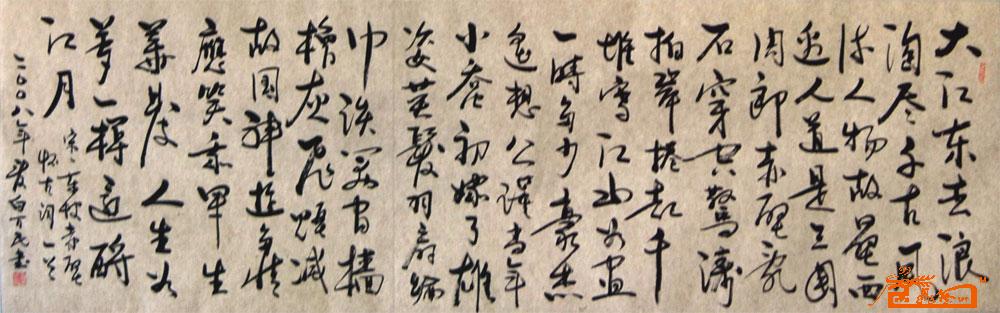 大江东去浪
淘尽千古风
流人物故垒西
边人道是三國
周郎赤壁乱
石穿空驚涛
拍岸捲起千
堆雪江山如画
一時多少豪杰
遥想公谨当年
小乔初嫁了雄
姿英髮羽扇纶
巾谈笑间檣
櫓灰飞烟滅
故国神遊多情
應笑我早生
華发人生如
夢一樽還酹
江月
宋东坡赤壁
怀古词一首
二〇〇八年 白万民书